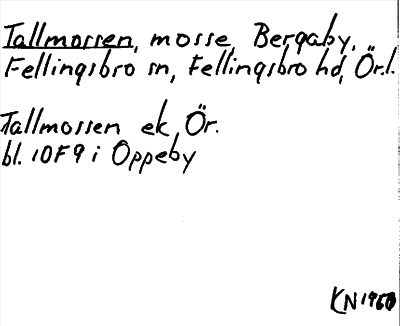 Tallmossen, mosse, Bergaby,
Fellingsbro sn, Fellingsbro hd, Ör.l.
Tallmossen ek, Ör.
bl. 10F9 i Oppeby
KN 1960